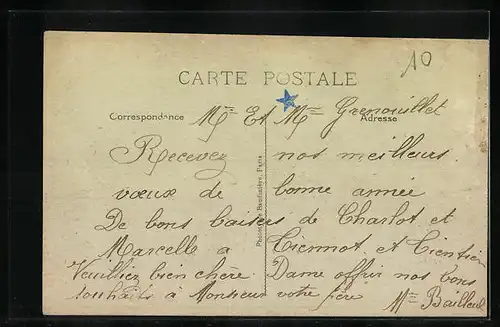 10
CARTE POSTALE
Correspondance
Adresse
Mr Et Mme Grenouillet
Recevez nos meilleurs
vœux de bonne année
De bons baisers de Charlot et
Marcelle a Etiennot et
Veuilliez bien chere Dame offrir nos bons
souhaits à Monsieur votre père
Mme Bailleul
Paris